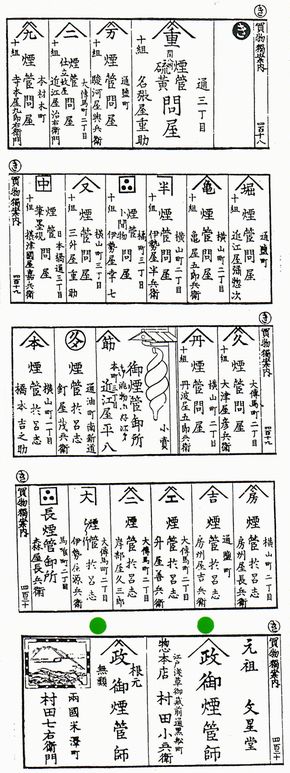 き
買物獨案内
通三丁目
重
煙管
硫黄
問屋
十組
名張屋重助
通塩町
煙管問屋
十組
駿河屋與兵衛
大傳馬町二丁目
煙管問屋
十組
近江屋治右衛門
本材木町
九
煙管問屋
十組
寺本屋九郎右衛門
き
買物獨案内
通塩町
堀
煙管問屋
十組
近江屋彌惣次
横山町二丁目
亀
煙管問屋
十組
亀屋五郎兵衛
横山町二丁目
半
煙管問屋
十組
伊勢屋半兵衛
横山町三丁目
煙管
小間物
問屋
十組
伊勢屋幸七
横山町二丁目
又
煙管問屋
十組
三升屋重助
日本橋通三丁目
中
煙管
筆墨硯
問屋
十組
摂津國屋嘉兵衛
き
買物獨案内
大傳馬町二丁目
久
煙管問屋
十組
大津屋彦兵衛
横山町二丁目
丹
煙管問屋
十組
丹波屋五郎兵衛
小賣
筋
御煙管卸所
本町
近江屋平八
通油町南新道
煙管於呂志
釘屋茂兵衛
横山町二丁目
本
煙管於呂志
橋本吉之助
き
買物獨案内
横山町二丁目
房
煙管於呂志
房州屋長兵衛
通塩町
吉
煙管於呂志
房州屋吉兵衛
大傳馬町二丁目
エ
煙管於呂志
升屋喜兵衛
大傳馬町二丁目
二
煙管於呂志
岸部屋久三郎
大傳馬町二丁目
大
煙管於呂志
伊勢屋源兵衛
馬喰町二丁目
長煙管卸所
森屋長兵衛
き
買物獨案内
元祖 文星堂
政
御煙管師
江戸浅草御蔵前通黒船町
惣本店 村田小兵衛
根元
政
御煙管師
無類
兩國米澤町
村田七右衛門